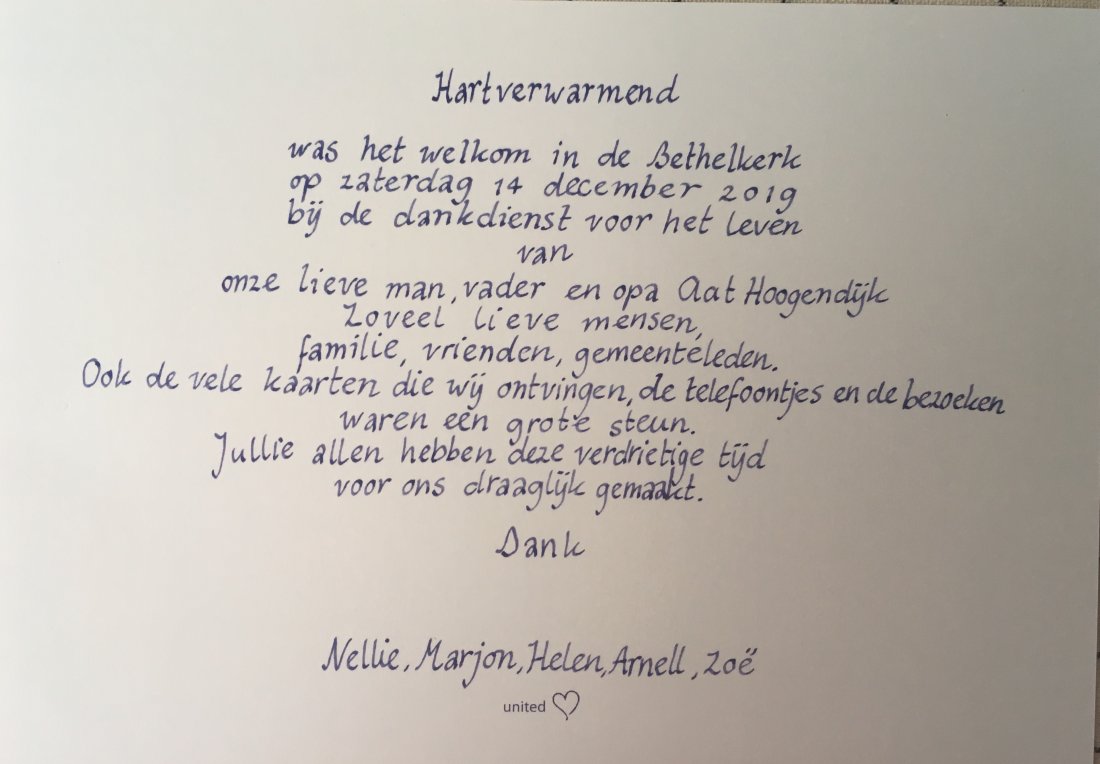 Hartverwarmend
was het welkom in de Bethelkerk
op zaterdag 14 december 2019
bij de dankdienst voor het leven
van
onze lieve man, vader en opa Aat Hoogendijk
Zoveel lieve mensen,
familie, vrienden, gemeenteleden.
Ook de vele kaarten die wij ontvingen, de telefoontjes en de bezoeken
waren een grote steun.
Jullie allen hebben deze verdrietige tijd
voor ons draaglijk gemaakt.
Dank
Nellie, Marjon, Helen, Arnell, Zoë
united